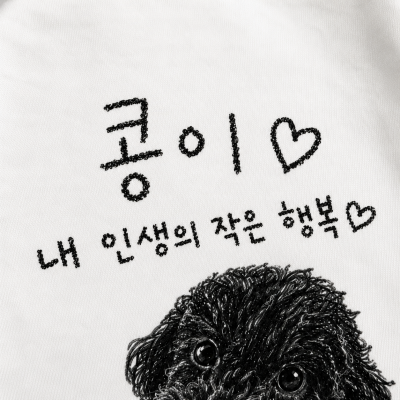 콩이♡
내 인생의 작은 행복♡